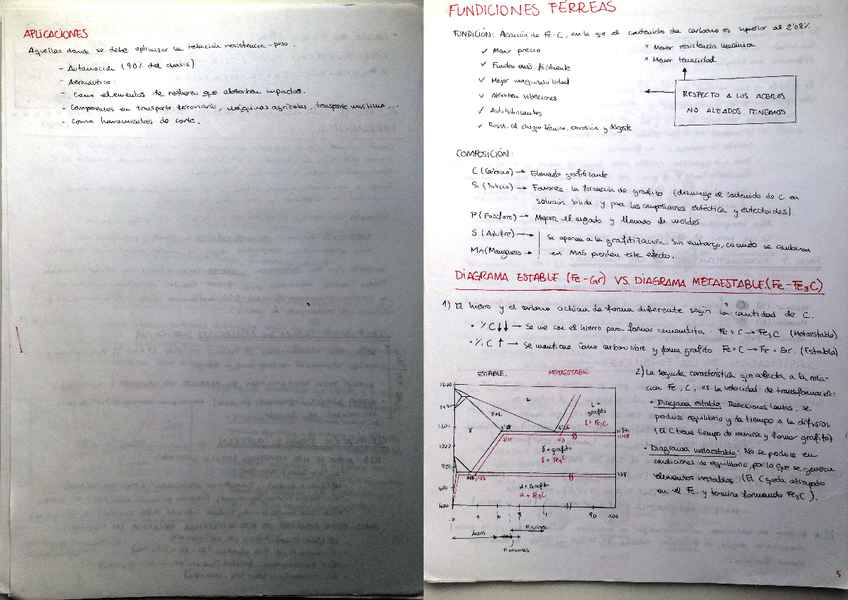 APLICACIONES
Aquellas donde se debe optimizar la relación resistencia-peso.
- Automoción (90% del chasis)
- Aeronáutico.
- Como elementos de refuerzo que absorban impactos.
- Componentes en transporte ferroviario, máquinas agrícolas, transporte marítimo...
- Como herramientas de corte.
FUNDICIONES FÉRREAS
FUNDICIÓN: Aleación de Fe-C, en la que el contenido de carbono es superior al 2'08%
✓ Menor precio
✓ Funden más fácilmente
✓ Mejor maquinabilidad
✓ Absorben vibraciones
✓ Autolubricantes
✓ Resist. al choque térmico, corrosión y desgaste
× Menor resistencia mecánica
× Menor tenacidad
RESPECTO A LOS ACEROS
NO ALEADOS, TENEMOS
COMPOSICIÓN:
C (Carbono) → Elemento grafitizante
Si (Silicio) → Favorece la formación de grafito (disminuye el contenido de C en
solución sólida y para las composiciones eutéctica y eutectoides).
P (Fósforo) → Mejora el colado y llenado de moldes
S (Azufre) →
Mn (Manganeso →
Se oponen a la grafitización. Sin embargo, cuando se combinan
en MnS pierden este efecto.
DIAGRAMA ESTABLE (Fe-Gr) VS. DIAGRAMA METAESTABLE (Fe-Fe3C)
1) El hierro y el carbono actúan de forma diferente según la cantidad de C.
• % C ↓↓ → Se une con el hierro para formar cementita Fe + C → Fe3C (Metaestable)
• % C ↑ → Se mantiene como carbono libre y forma grafito Fe + C → Fe + Gr. (Estable)
ESTABLE.
METAESTABLE
L
γ+L
γ
L +
grafito
L + Fe3C
γ + grafito
γ + Fe3C
α + Grafito
α + Fe3C
90 100
Aceros
Fundic.
2) La segunda característica que afecta a la rela-
ción Fe, C, es la velocidad de transformación:
• Diagrama estable: Reacciones lentas, se
produce equilibrio y da tiempo a la difusión
(El C tiene tiempo de reunirse y formar grafito)
• Diagrama metaestable: No se produce en
condiciones de equilibrio, por lo que se generan
elementos inestables (El C queda atrapado
en el Fe y termina formando Fe3C).
5